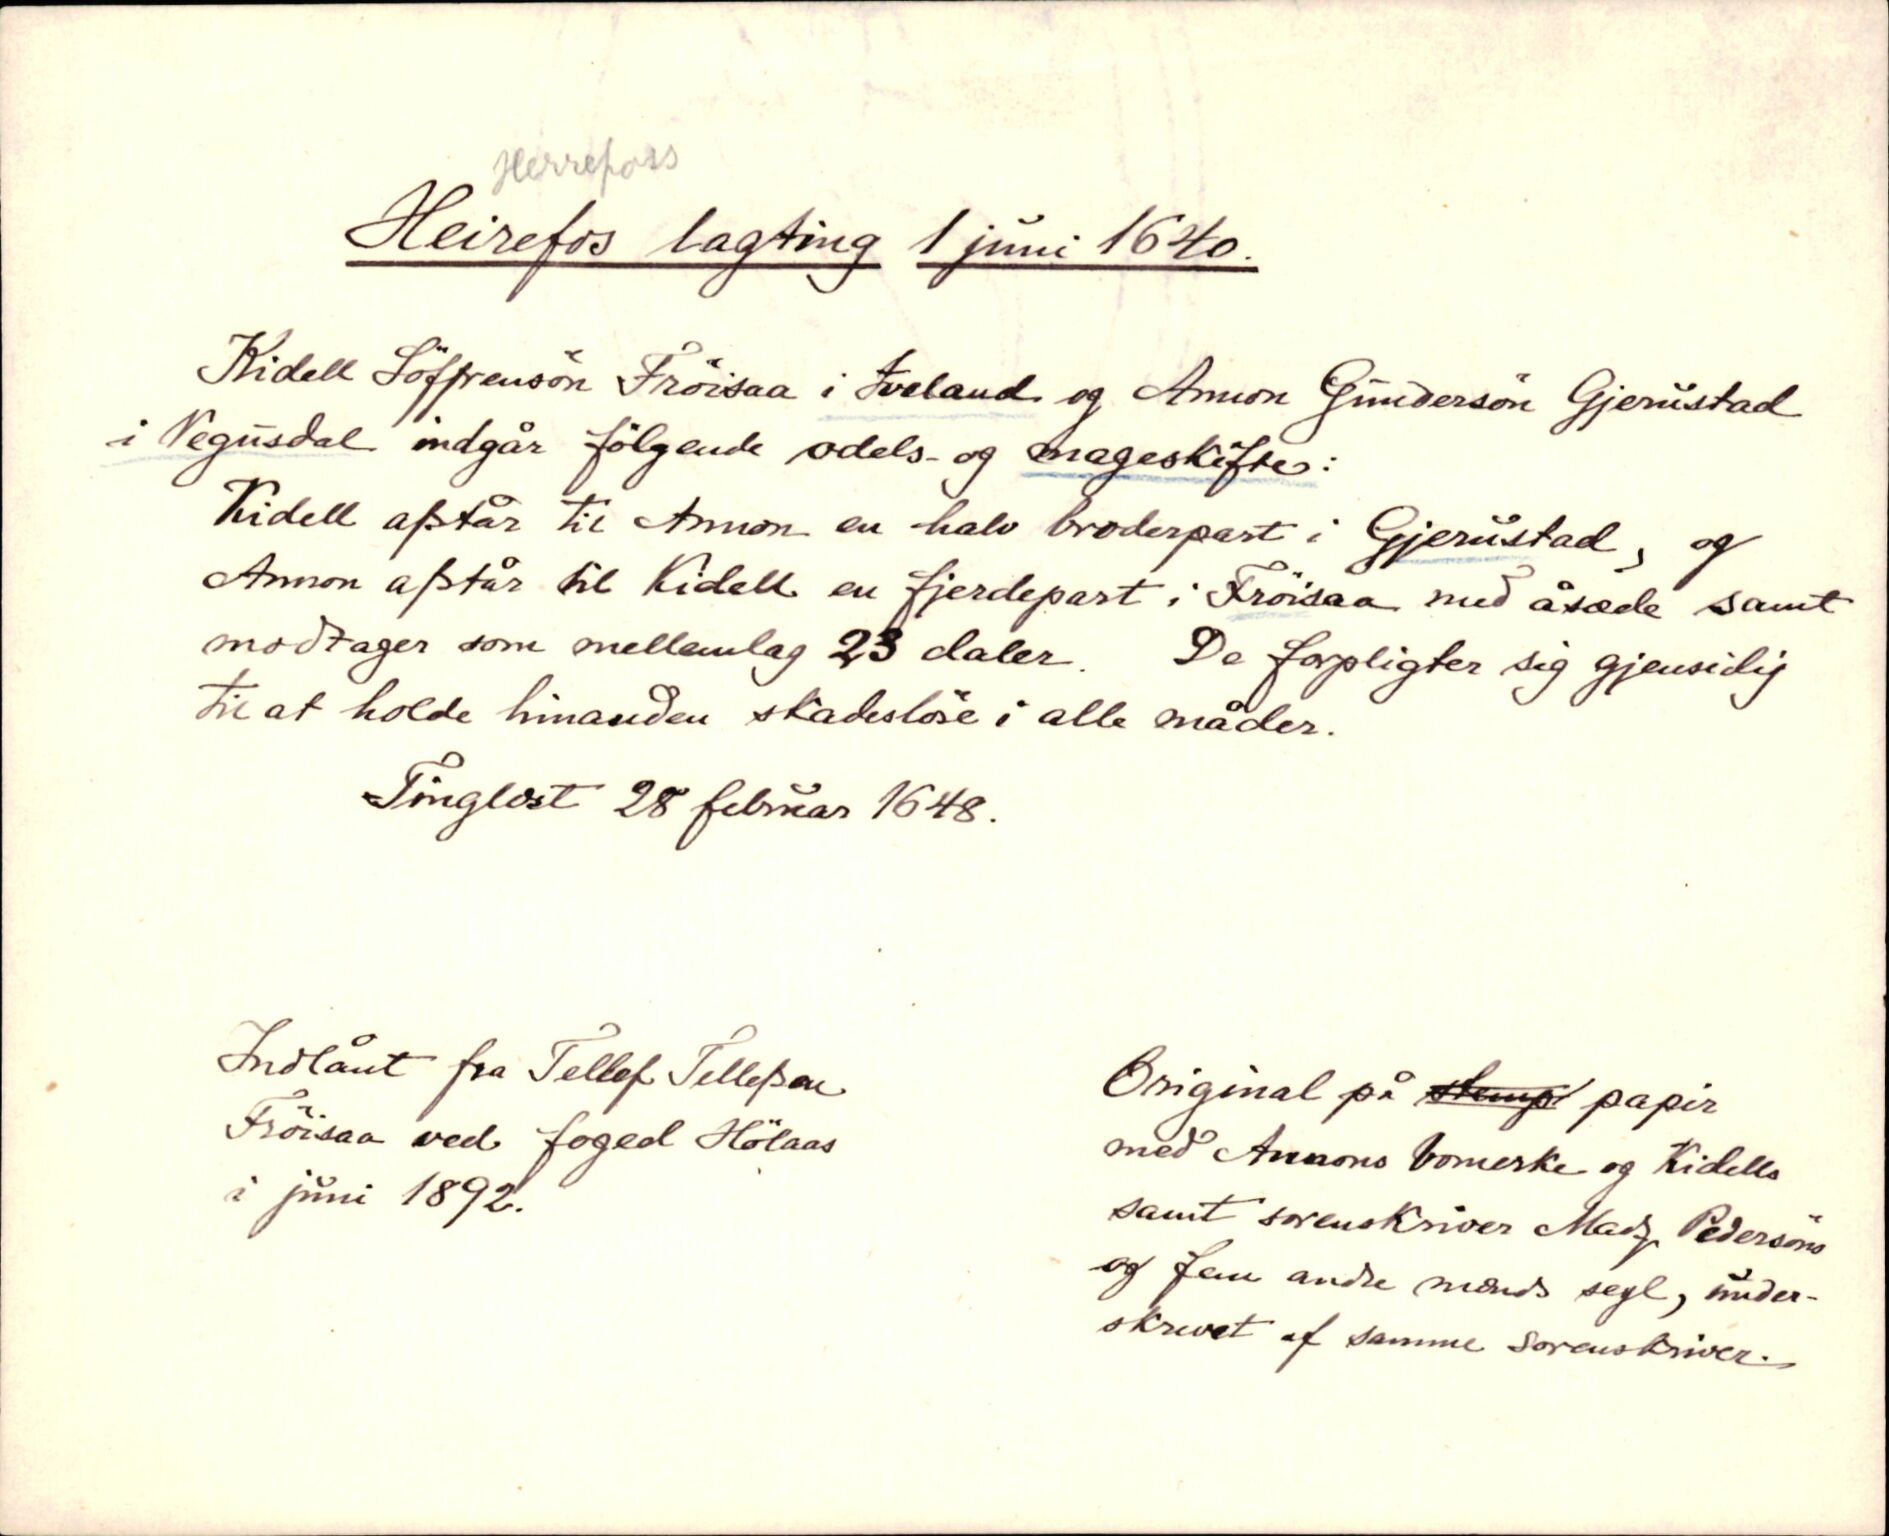 Herrefoss
Heirefos lagting 1 juni 1640.
Kidell Söffrensön Fröisaa i Iveland og Annon Gundersön Gjerustad
i Vegusdal indgår fölgende odels- og mageskifte:
Kidell afstår til Annon en halv broderpart i Gjerustad, og
Annon afstår til Kidell en fjerdepart i Fröisaa med åsæde samt
modtager som mellemlag 23 daler. De forpligter sig gjensidig
til at holde hinanden skadeslöse i alle måder.
Tinglæst 28 februar 1648.
Indlånt fra Tellef Tellefsen
Fröisaa ved foged Hölaas
i juni 1892.
Original på stemp papir
med Annons bomerke og Kidells
samt sorenskriver Madz Pedersöns
og fem andre mænds segl, under-
skrevet af samme sorenskriver.